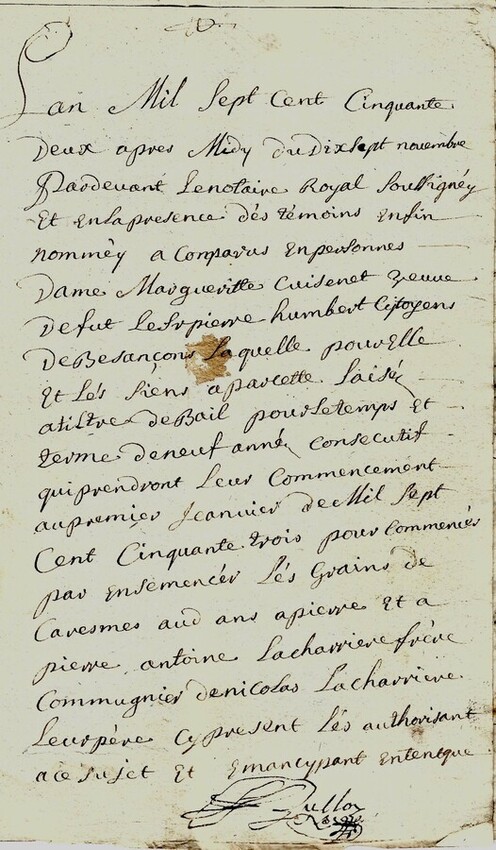 Lan Mil Sept Cent Cinquante
Deux apres Midy du Dix Sept novembre
Pardevant Lenotaire Royal Soussigney
Et enlapresence dés témoins enfin
nommèy a Comparus Enpersonnes
Dame Margueritte Cuisenet veuve
De fut LeSr pierre humbert Citoyens
De Besançons Laquelle pour Elle
Et Lés siens aparcette Laisé
atiltre de Bail pour Letemps Et
terme deneuf année Consecutif
qui prendront Leur Commencement
aupremier Jeanvier de Mil Sept
Cent Cinquante trois pour Commencér
par Ensemencér Lés Grains de
Caresmes aud ans apierre Et a
pierre antoine Lacharriere frère
Commugnier denicolas Lacharriere
Leur père Cy present Lés authorisant
a ce sujet Et Emancypant Ententque